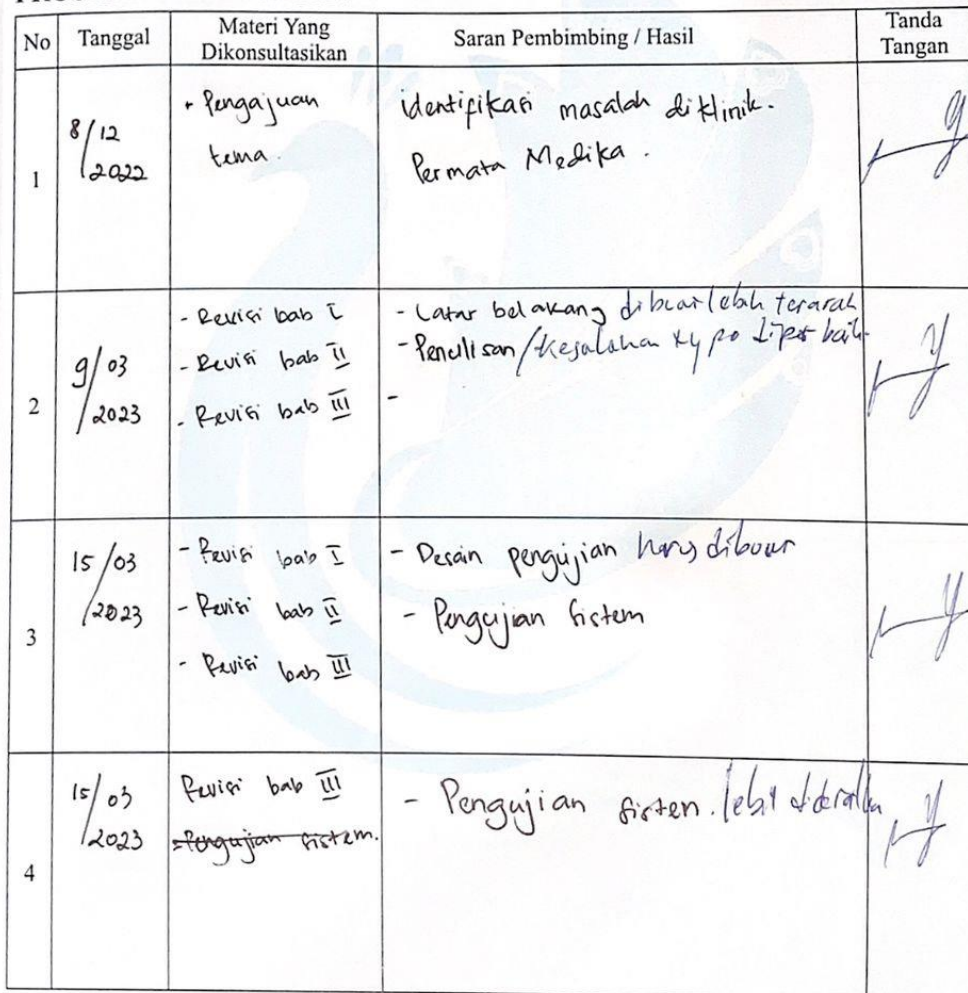 No Tanggal Materi Yang Dikonsultasikan Saran Pembimbing / Hasil Tanda Tangan
1
8/12
2022
+ Pengajuan
tema.
identifikasi masalah di klinik.
Permata Medika.
2
9/03
2023
- Revisi bab I
- Revisi bab II
- Revisi bab III
- Latar belakang dibuat lebih terarah
- Penulisan/kesalahan typo diperbaiki
-
3
15/03
2023
- Revisi bab I
- Revisi bab II
- Revisi bab III
- Desain pengujian harus dibuat
- Pengujian sistem
4
15/03
2023
Revisi bab III
- Pengujian sistem.
- Pengujian sistem. lebih